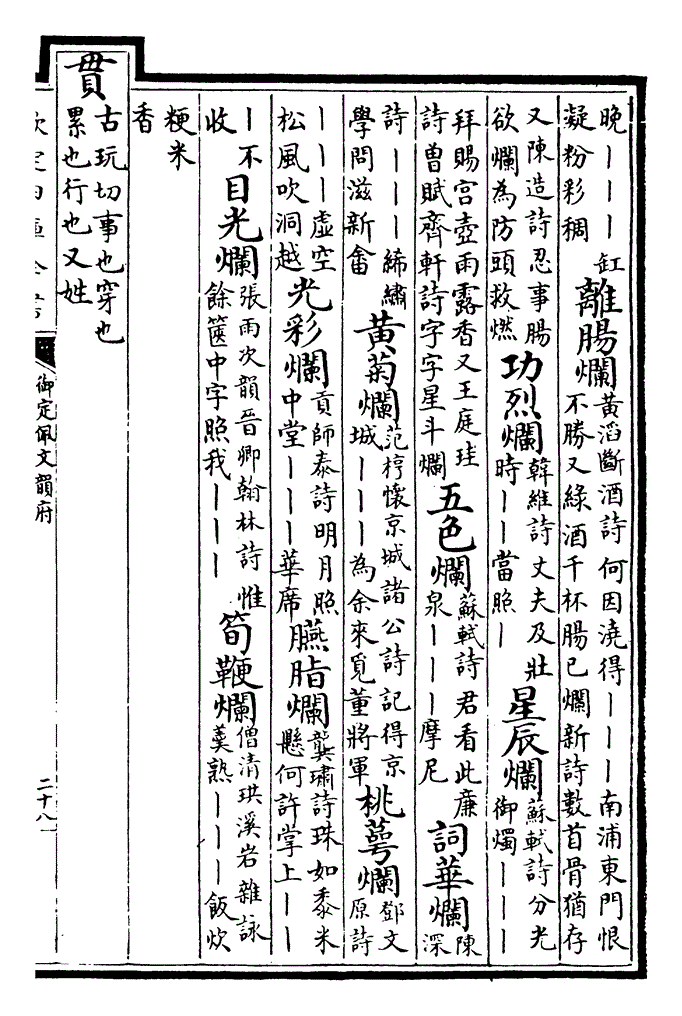 晚｜｜｜缸
凝粉彩稠
離腸爛
黃滔斷酒詩何因澆得｜｜｜南浦東門恨
不勝又綠酒千杯腸已爛新詩數首骨猶存
又陳造詩忍事腸
欲爛為防頭救燃
功烈爛
韓維詩丈夫及壯
時｜｜當照｜
星辰爛
蘇軾詩分光
御燭｜｜｜
拜賜宮壺雨露香又王庭珪
詩曽賦齊軒詩字字星斗爛
五色爛
蘇軾詩君看此亷
泉｜｜｜摩尼
詞華爛
陳
深
詩｜｜｜締繡
學問滋新畬
黃菊爛
范梈懷京城諸公詩記得京
城｜｜｜為余來覓董將軍
桃萼爛
鄧文
原詩
｜｜｜虛空
松風吹洞越
光彩爛
貢師泰詩明月照
中堂｜｜｜華席
臙脂爛
龔璛詩珠如黍米
懸何許掌上｜｜
｜不
收
目光爛
張雨次韻晉卿翰林詩惟
餘篋中字照我｜｜｜
筍鞭爛
僧清珙溪岩雜詠
羹熟｜｜｜飯炊
粳米
香
貫
古玩切事也穿也
累也行也又姓
欽定四庫全書
御定佩文韻府
二十八